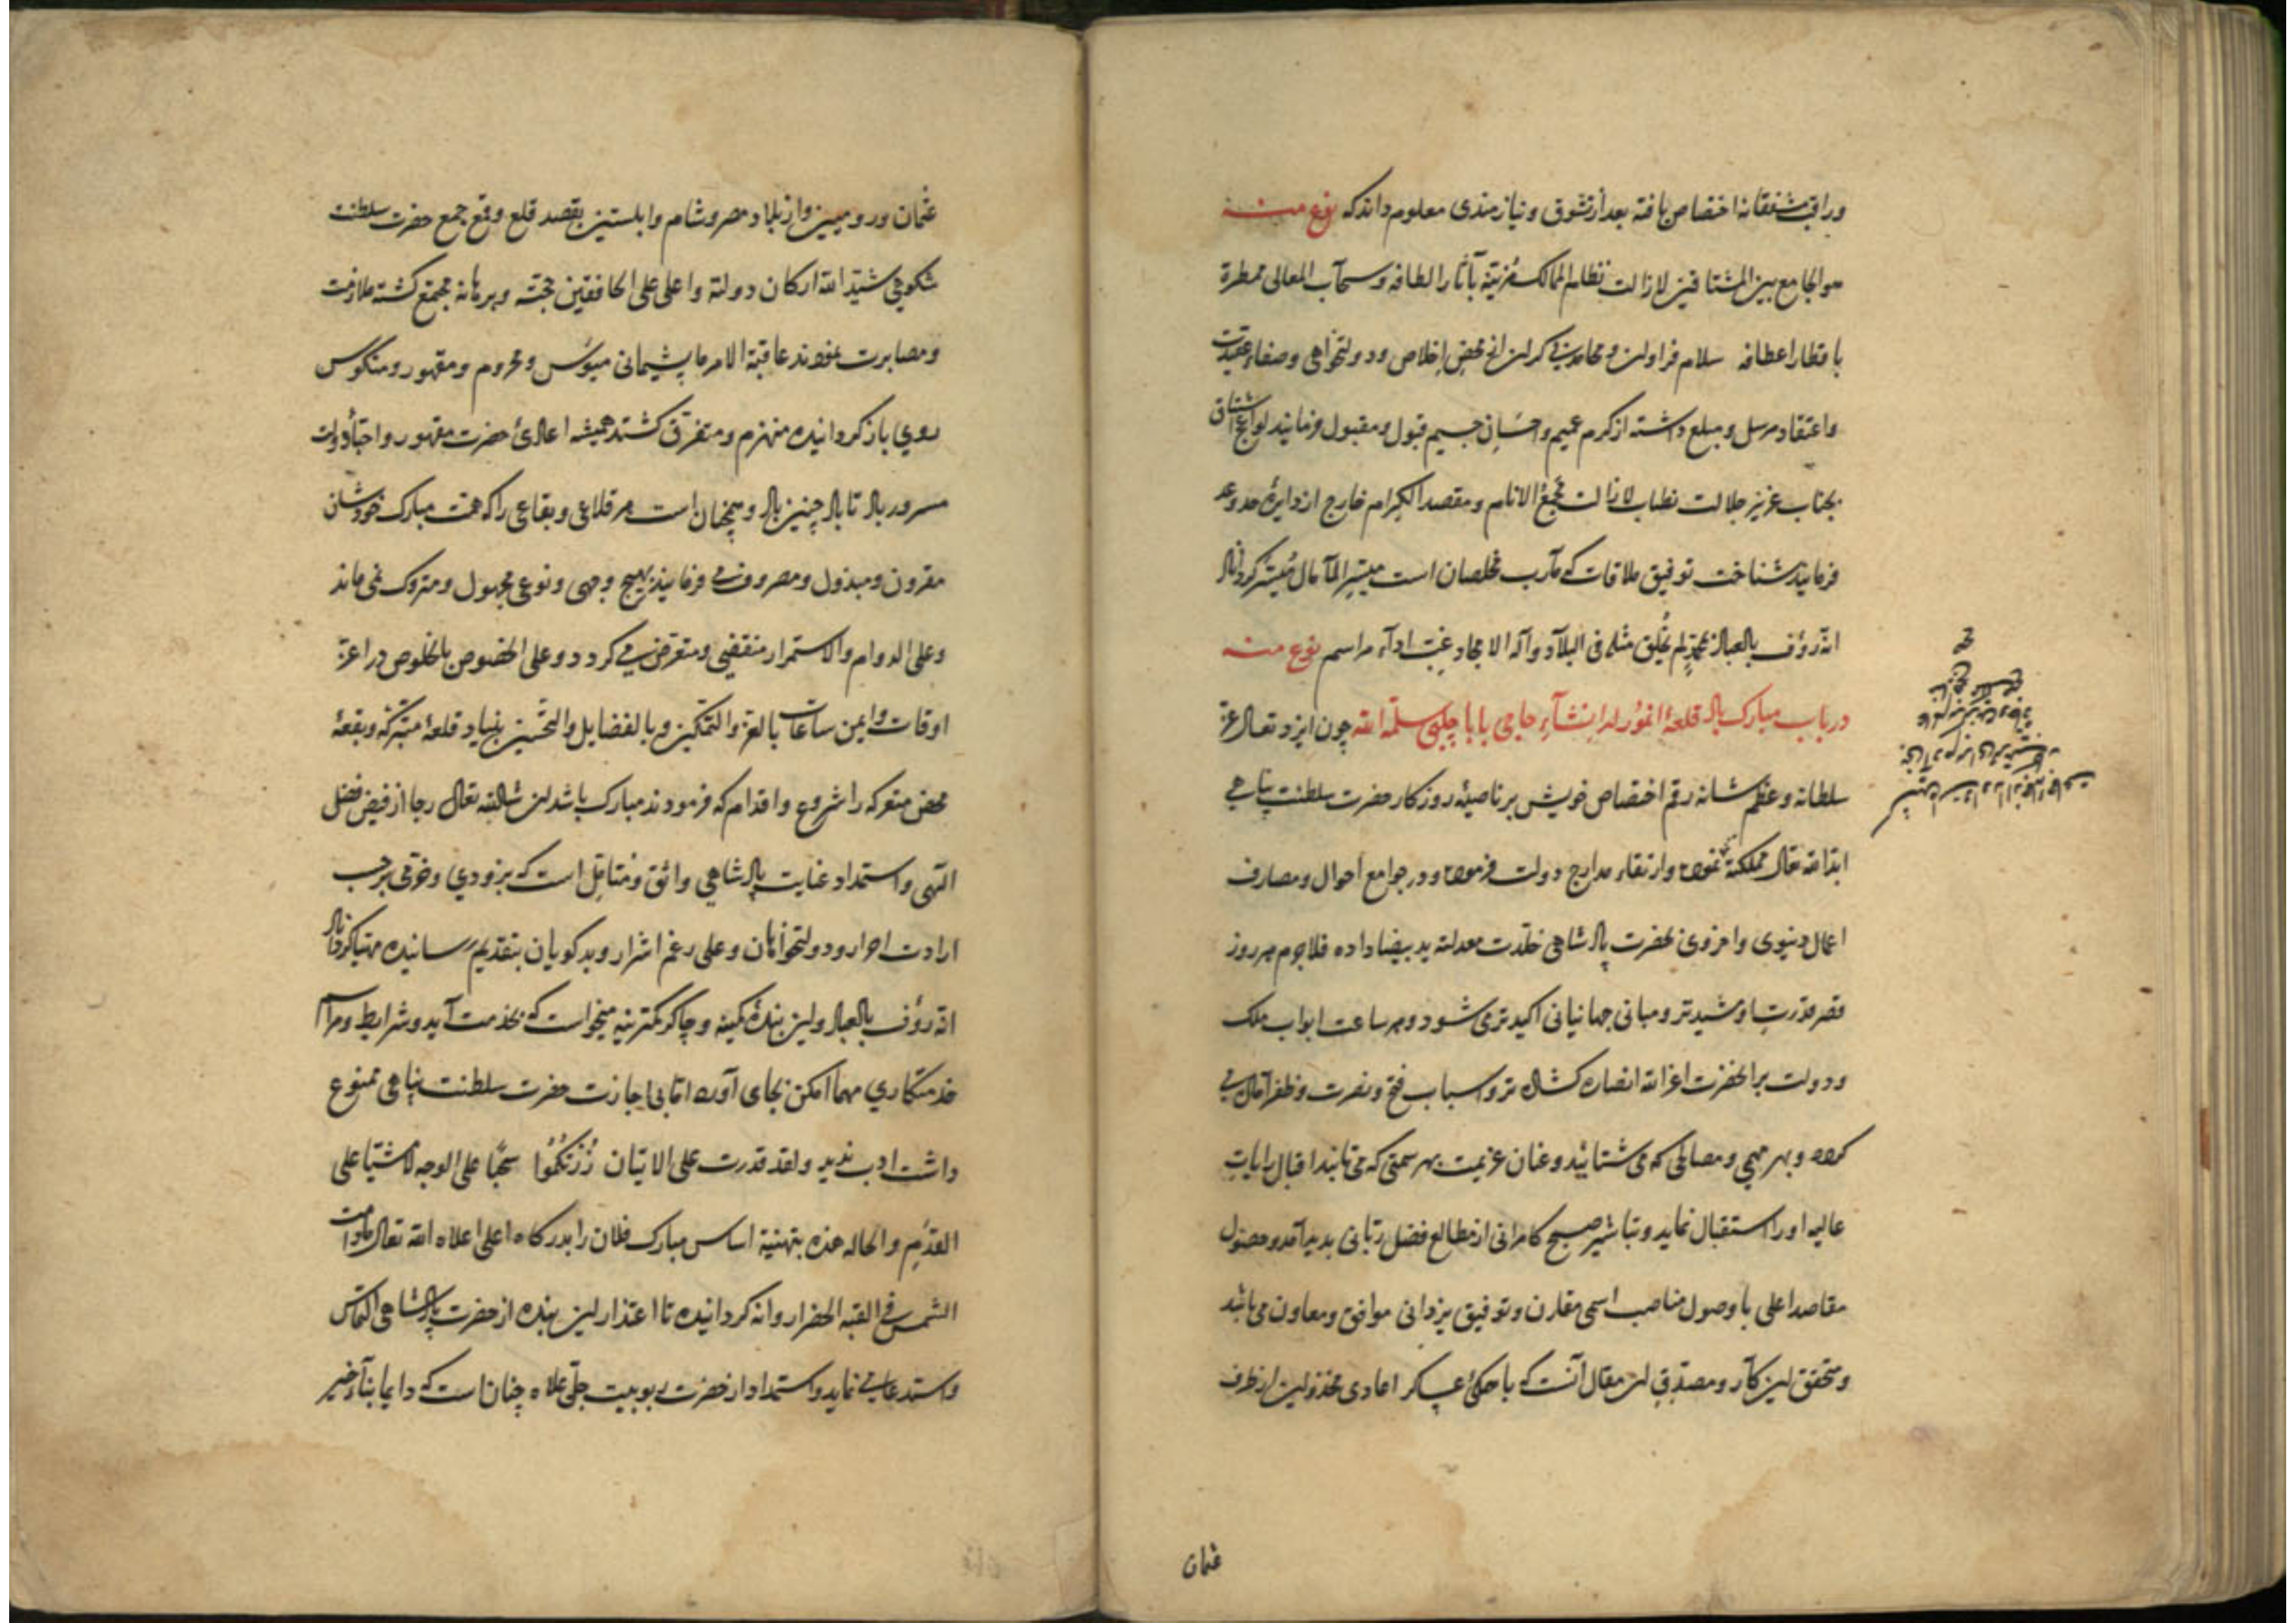 ورافت مشفقانه اختصاص یافته بعد از تشوق و نیازمندی معلوم داند که نوع منه
هو الجامع بین المشتاقین لازالت نظام الممالک مزینة بآثار الطافه و سحاب المعالی ممطرة
باقطار اعطافه سلام فراوان و محامدت بی کران از محض اخلاص و دولتخواهی و صفاء عقیدت
و اعتقاد مرسل و مبلغ داشته از کرم عمیم و احسان جسیم قبول و مقبول فرمایند لواعج اشتیاق
بجناب عزیز جلالت لازالت مجمع الانام و مقصد الکرام خارج از دایره حد و عد
فرمایند شناخت توفیق ملاقات که مآرب مخلصان است میسر الآمال میسر کرداناد
انه رؤف بالعباد بمحمد لم یخلق مثله فی البلاد وآله الامجاد غب اداء مراسم نوع منه
در باب مبارک باد قلعهٔ انشآء حاجی بابا چلبی سلمه الله چون ایزد تعالی عز
سلطانه و عظم شانه رقم اختصاص خویش بر ناصیهٔ روزکار حضرت سلطنت پناهی
ابد الله تعالی مملکته نموده و ارتقاء مدارج دولت فرموده و در جوامع احوال و مصارف
اعمال دنیوی و اخروی بحضرت پادشاهی خلدت معدلته ید بیضا داده فلاجرم هر روز
قصر قدرت او شید تر و مبانی جهانبانی اکید تر می شود و هر ساعت ابواب ملک
و دولت بر آنحضرت اعز الله انصاره کشاده تر و اسباب فتح و نصرت و ظفر آماده می
کردد و بهر مهمی و مصالحی که می شتابند و عنان عزیمت بهر سمتی که می تابند اقبال رایات
عالیه او را استقبال نماید و تباشیر صبح کامرانی از مطالع فضل ربانی بدید آمد و حصول
مقاصد اعلی با وصول مناصب اسمی مقارن و توفیق یزدانی موافق و معاون می باشد
و محقق این کار و مصدق این مقال آنست که با عساکر اعادی مخذولین از طرف
عثمان
عثمان و رومیین و از بلاد مصر و شام و ابلستین بقصد قلع و قمع جمع حضرت سلطنت
شکوهی شید الله ارکان دولته و اعلی علی الخافقین حجته و برهانه مجتمع کشته ملازمت
و مصابرت نمودند عاقبة الامر با پشیمانی میؤس و محروم و مقهور و منکوس
روی باز کردانیده منهزم و متفرق کشتند همیشه اعادئ حضرت مقهور و احباء دولت
مسرور باد تا باد چنین باد و همچنان است هر قلاعی و بقاعی را که همت مبارک خودشان
مقرون و مبذول و مصروف می فرمایند بهیچ وجهی و نوعی مجهول و متروک نمی ماند
و علی الدوام و الاستمرار منقضی و متعرض نمی کردد و علی الخصوص بالخلوص در اعز
اوقات و ایمن ساعات بالعز و التمکین و بالفضایل و التحسین بنیاد قلعهٔ متبرکه و بقعهٔ
محض معرکه را شروع و اقدام که فرمودند مبارک باشد ان شاالله تعالی رجا از فیض فضل
الهی و استمداد عنایت پادشاهی واثق و متامل است که بزودی و خرمی بر حسب
ارادت احرار و دولتخواهان و علی رغم اشرار و بدکویان بتقدیم رسانیده مهیا کرداناد
انه رؤف بالعباد و این بندهٔ کمینه و چاکر کمترینه میخواست که بخدمت آید و شرایط و مراسم
خدمتکاری مهما امکن بجای آورد اما بی اجازت حضرت سلطنت پناهی ممنوع
داشت ادب ندید و لقد قدرت علی الاتیان زرتکموا سحبا علی الوجه لا مشیا علی
القدم و الحاله هذه بتهنیة اساس مبارک فلان را بدرکاه اعلی اعلاه الله تعالی مادامت
الشمس فی القبه الخضرا روانه کردانیده تا اعتذار این بنده از حضرت پادشاهی التماس
و استدعا می نماید و استمداد از حضرت ربوبیت جل علاه چنان است که دایما بناء خیر